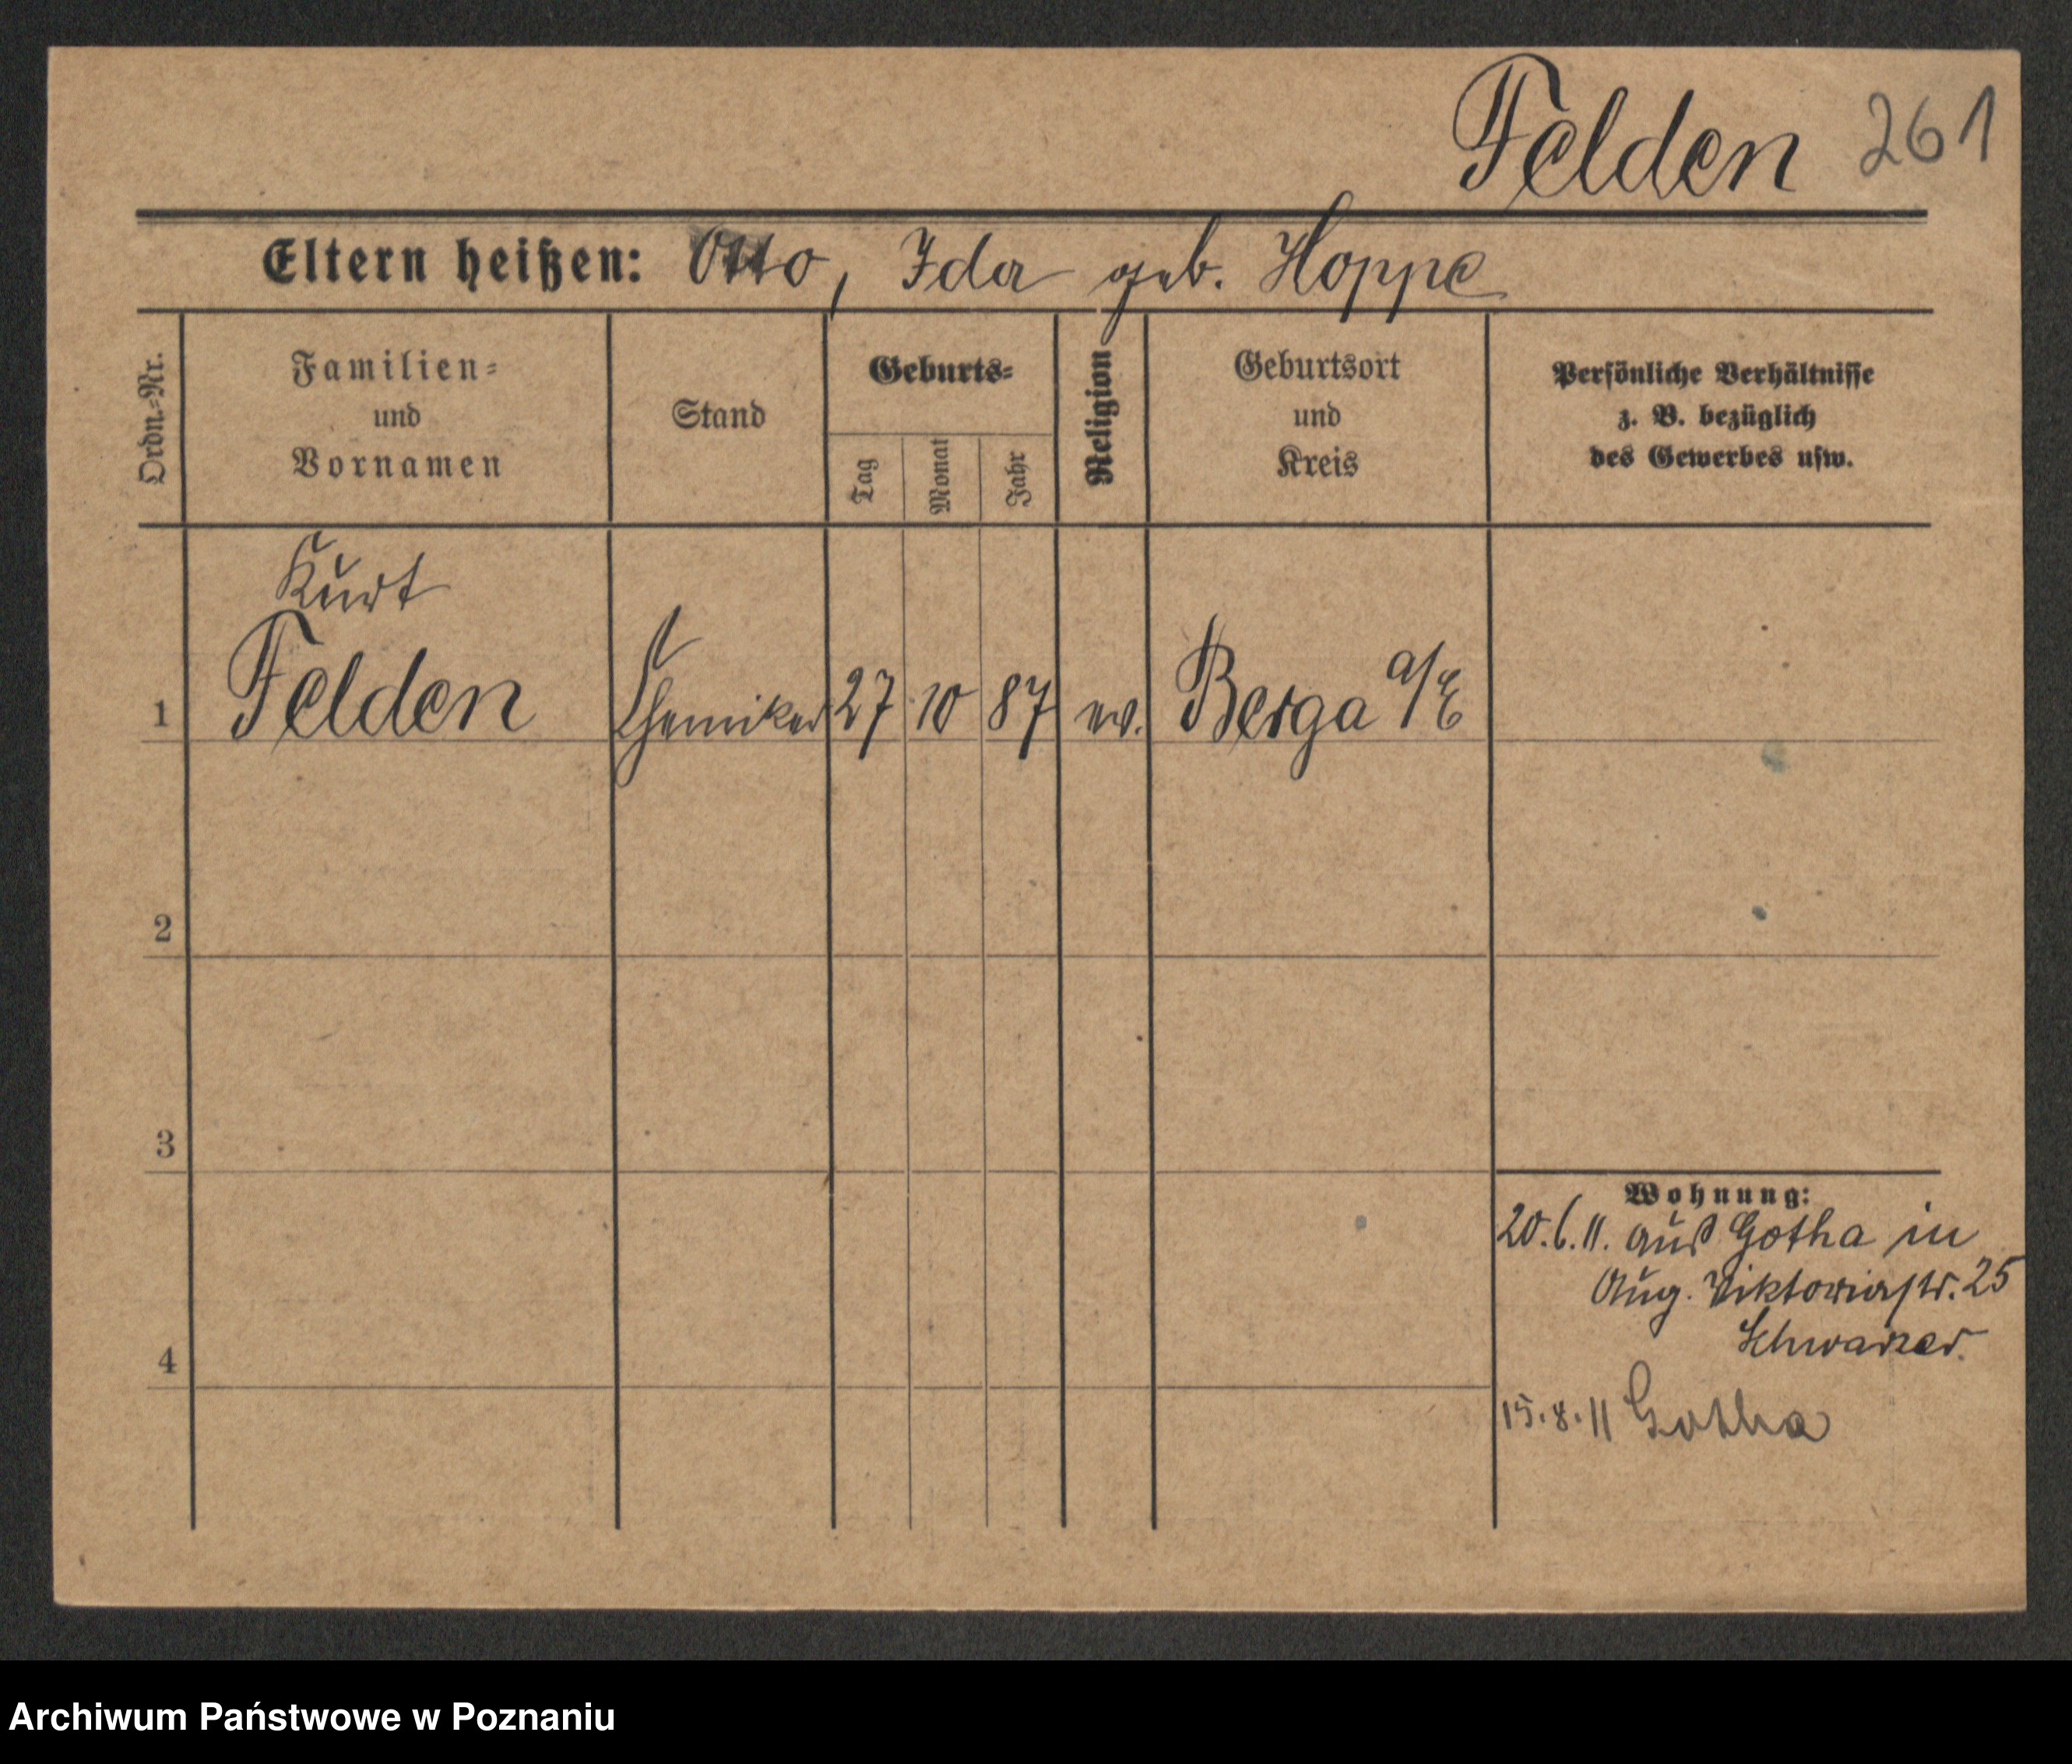 Felden 261
Eltern heißen: Otto, Ida geb. Hoppe
Ordn.-Nr.
Familien-
und
Vornamen
Stand
Geburts-
Tag
Monat
Jahr
Religion
Geburtsort
und
Kreis
Persönliche Verhältnisse
z. B. bezüglich
des Gewerbes usw.
Kurt
1 Felden Chemiker 27 10 87 ev. Berga a/E
2
3
4
Wohnung:
20.6.11. aus Gotha in
Aug. Viktoriastr. 25
15.8.11 Gotha
Archiwum Państwowe w Poznaniu